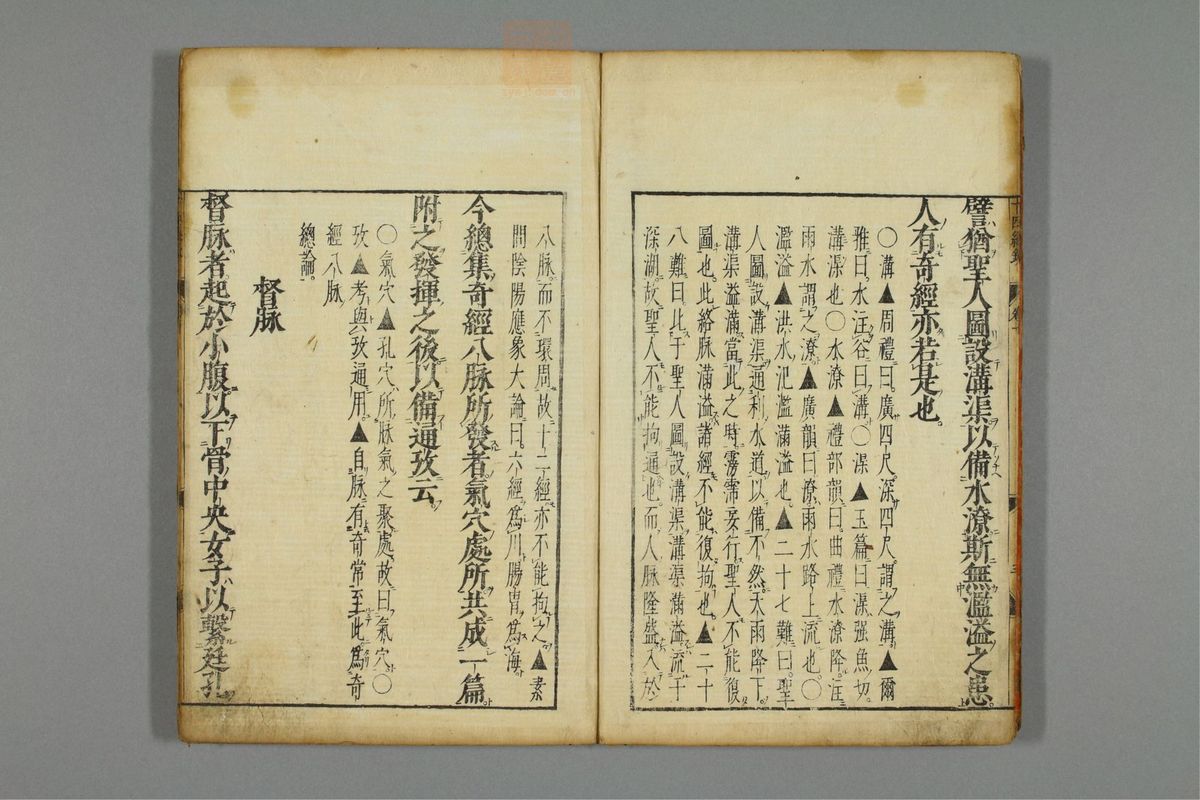 譬猶聖人圖設溝渠以備水潦斯無濫溢之患
人有奇經亦若是也
〇溝▲周禮曰廣四尺深四尺謂之溝▲爾
雅曰水注谷曰溝〇渠▲玉篇曰渠强魚切
溝渠也〇水潦▲禮部韻曰曲禮水潦降注
雨水謂之潦▲廣韻曰潦雨水路上流也〇
濫溢▲洪水汜濫滿溢也▲二十七難曰聖
人圖設溝渠通利水道以備不然天雨降下
溝渠溢滿當此之時霶霈妄行聖人不能復
圖也此絡脉滿溢諸經不能復拘也▲二十
八難曰比于聖人圖設溝渠溝渠滿溢流于
深湖故聖人不能拘通也而人脉隆盛入於
八脉而不環周故十二經亦不能拘之▲素
問陰陽應象大論曰六經爲川腸胃爲海
今總集奇經八脉所發者氣穴處所共成一篇
附之發揮之後以備通攷云
〇氣穴▲孔穴所脉氣之聚處故曰氣穴〇
攷▲考與攷通用▲自脉有奇常至此爲奇
經八脉
總論
督脉
督脉者起於小腹以下骨中央女子以繫廷孔